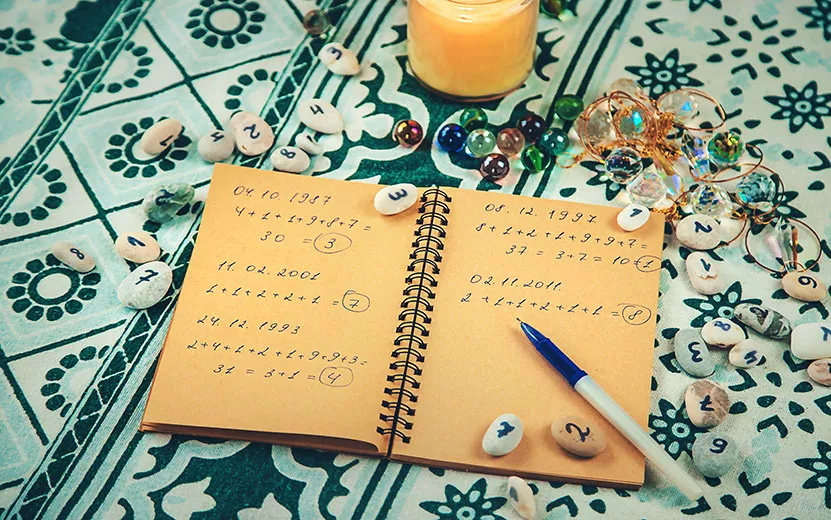 04. 10. 1987
4+1+1+9+8+7=
30 = 3
11. 02. 2001
1+1+2+2+1 = 7
24. 12. 1993
2+4+1+2+1+9+9+3=
31 = 3+1 = 4
08. 12. 1997
8+1+2+1+9+9+7=
37 = 3+7 = 10 = 1
02. 11. 2011.
2+1+1+2+1+1 = 8
3
4
2
8
1
7
8
3
1
2
4
1
6
8
7
6